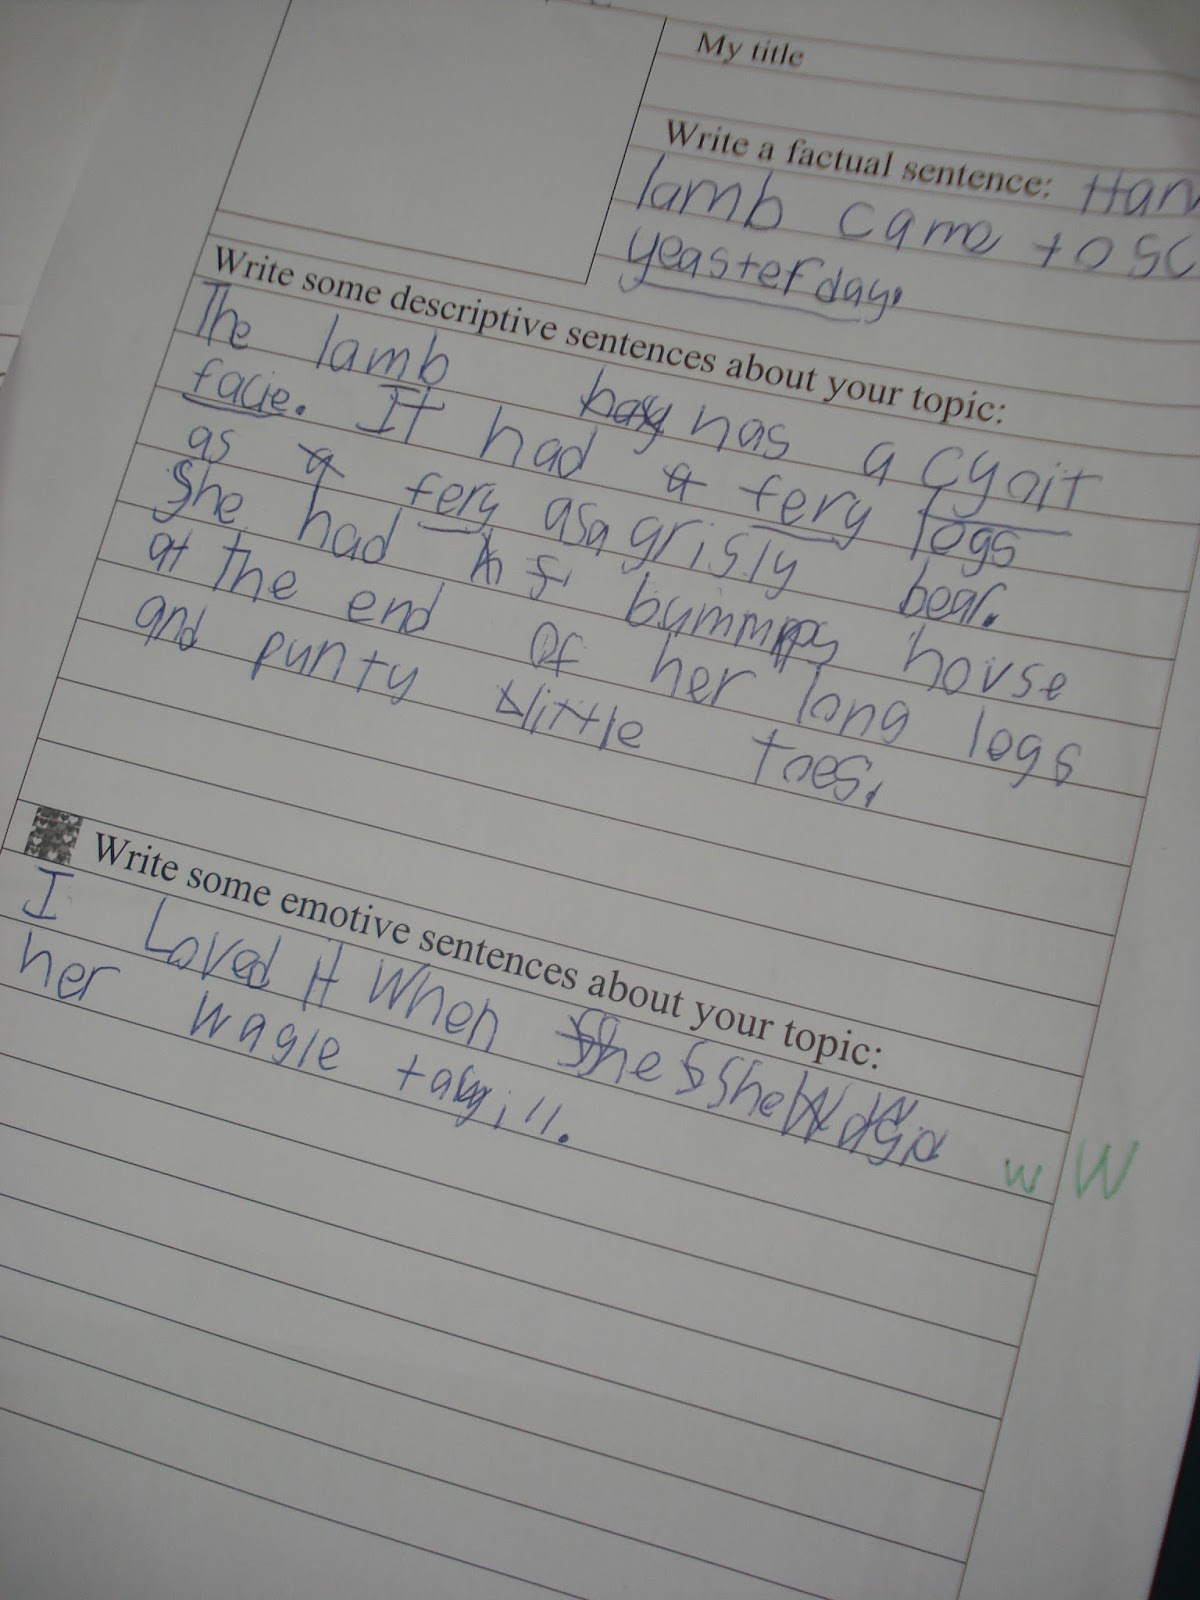 My title
Write a factual sentence: Han
lamb came to sc
yeasterday.
Write some descriptive sentences about your topic:
The lamb has a cyoit
facie. It had a fery logs
as a fery as a grisly bear.
She had bummpy hovse
at the end of her long logs
and punty little toes.
Write some emotive sentences about your topic:
I Loved it When She
her wagle taill.
w W